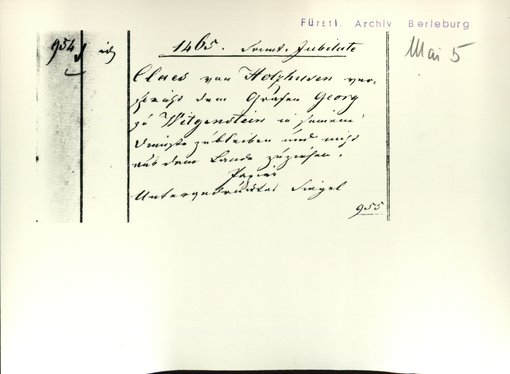 Fürstl. Archiv Berleburg
Mai 5
954
1465. Jubilate
Claes von Holzhusen ver-
dem Grafen Georg
zu Witgenstein in seinem
Dienste zu bleiben und nicht
aus dem Lande zu ziehen.
Papier
Untergedrücktes Siegel
955